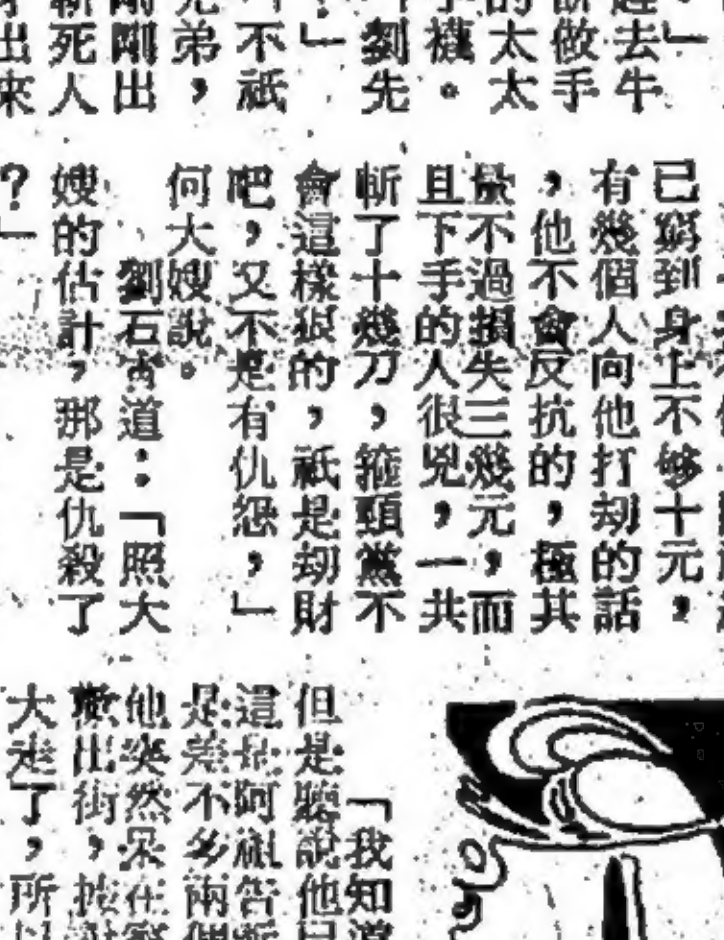 趕去牛
做手
的太太
手襪。
劉先
？」
不祇
兄弟，
剛剛出
斬死人
出來
已窮到身上不够十元，
有幾個人向他打刼的話
，他不會反抗的，極其
量不過損失三幾元，而
且下手的人很兇，一共
斬了十幾刀，箍頸黨不
會這樣狠的，祇是刼財
吧，又不是有仇怨，」
何大嫂說。
劉石道：「照大
嫂的估計，那是仇殺了
？」
「我知道
但是聽說他
這是阿祖告
是差不多兩個
他突然呆在
出街，
大走了，所以